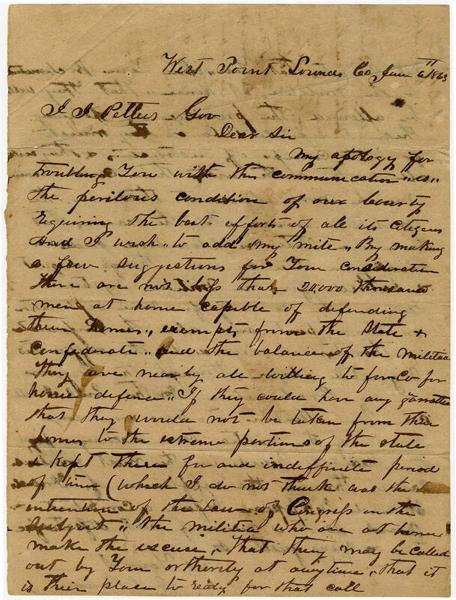 West Point Lowndes Co, June 6th 1863
J. J. Pettus Gov
Dear Sir
My apology for
troubling You with this communication is
the perilous condition of our County
requiring the best efforts of all its Citizens
And I wish to add my mite, By making
a few suggestions for Your Consideration
there are not less than 20,000 thousand
men at home capable of defending
their homes, exempts from the State &
Confederate, and the balance of the militia
they are nearly all willing to form Co for
home defence, If they could have any garantee
that they would not be taken from their
homes to the extreme portions of the state
& kept there for and indeffinite period
of time (which I do not think was the
intention of the Law of Congress on the
Subject, the militia who are at home
make the excuse, that thing may be Called
out by Your orthority at anytime, that it
is their place to ready for that call